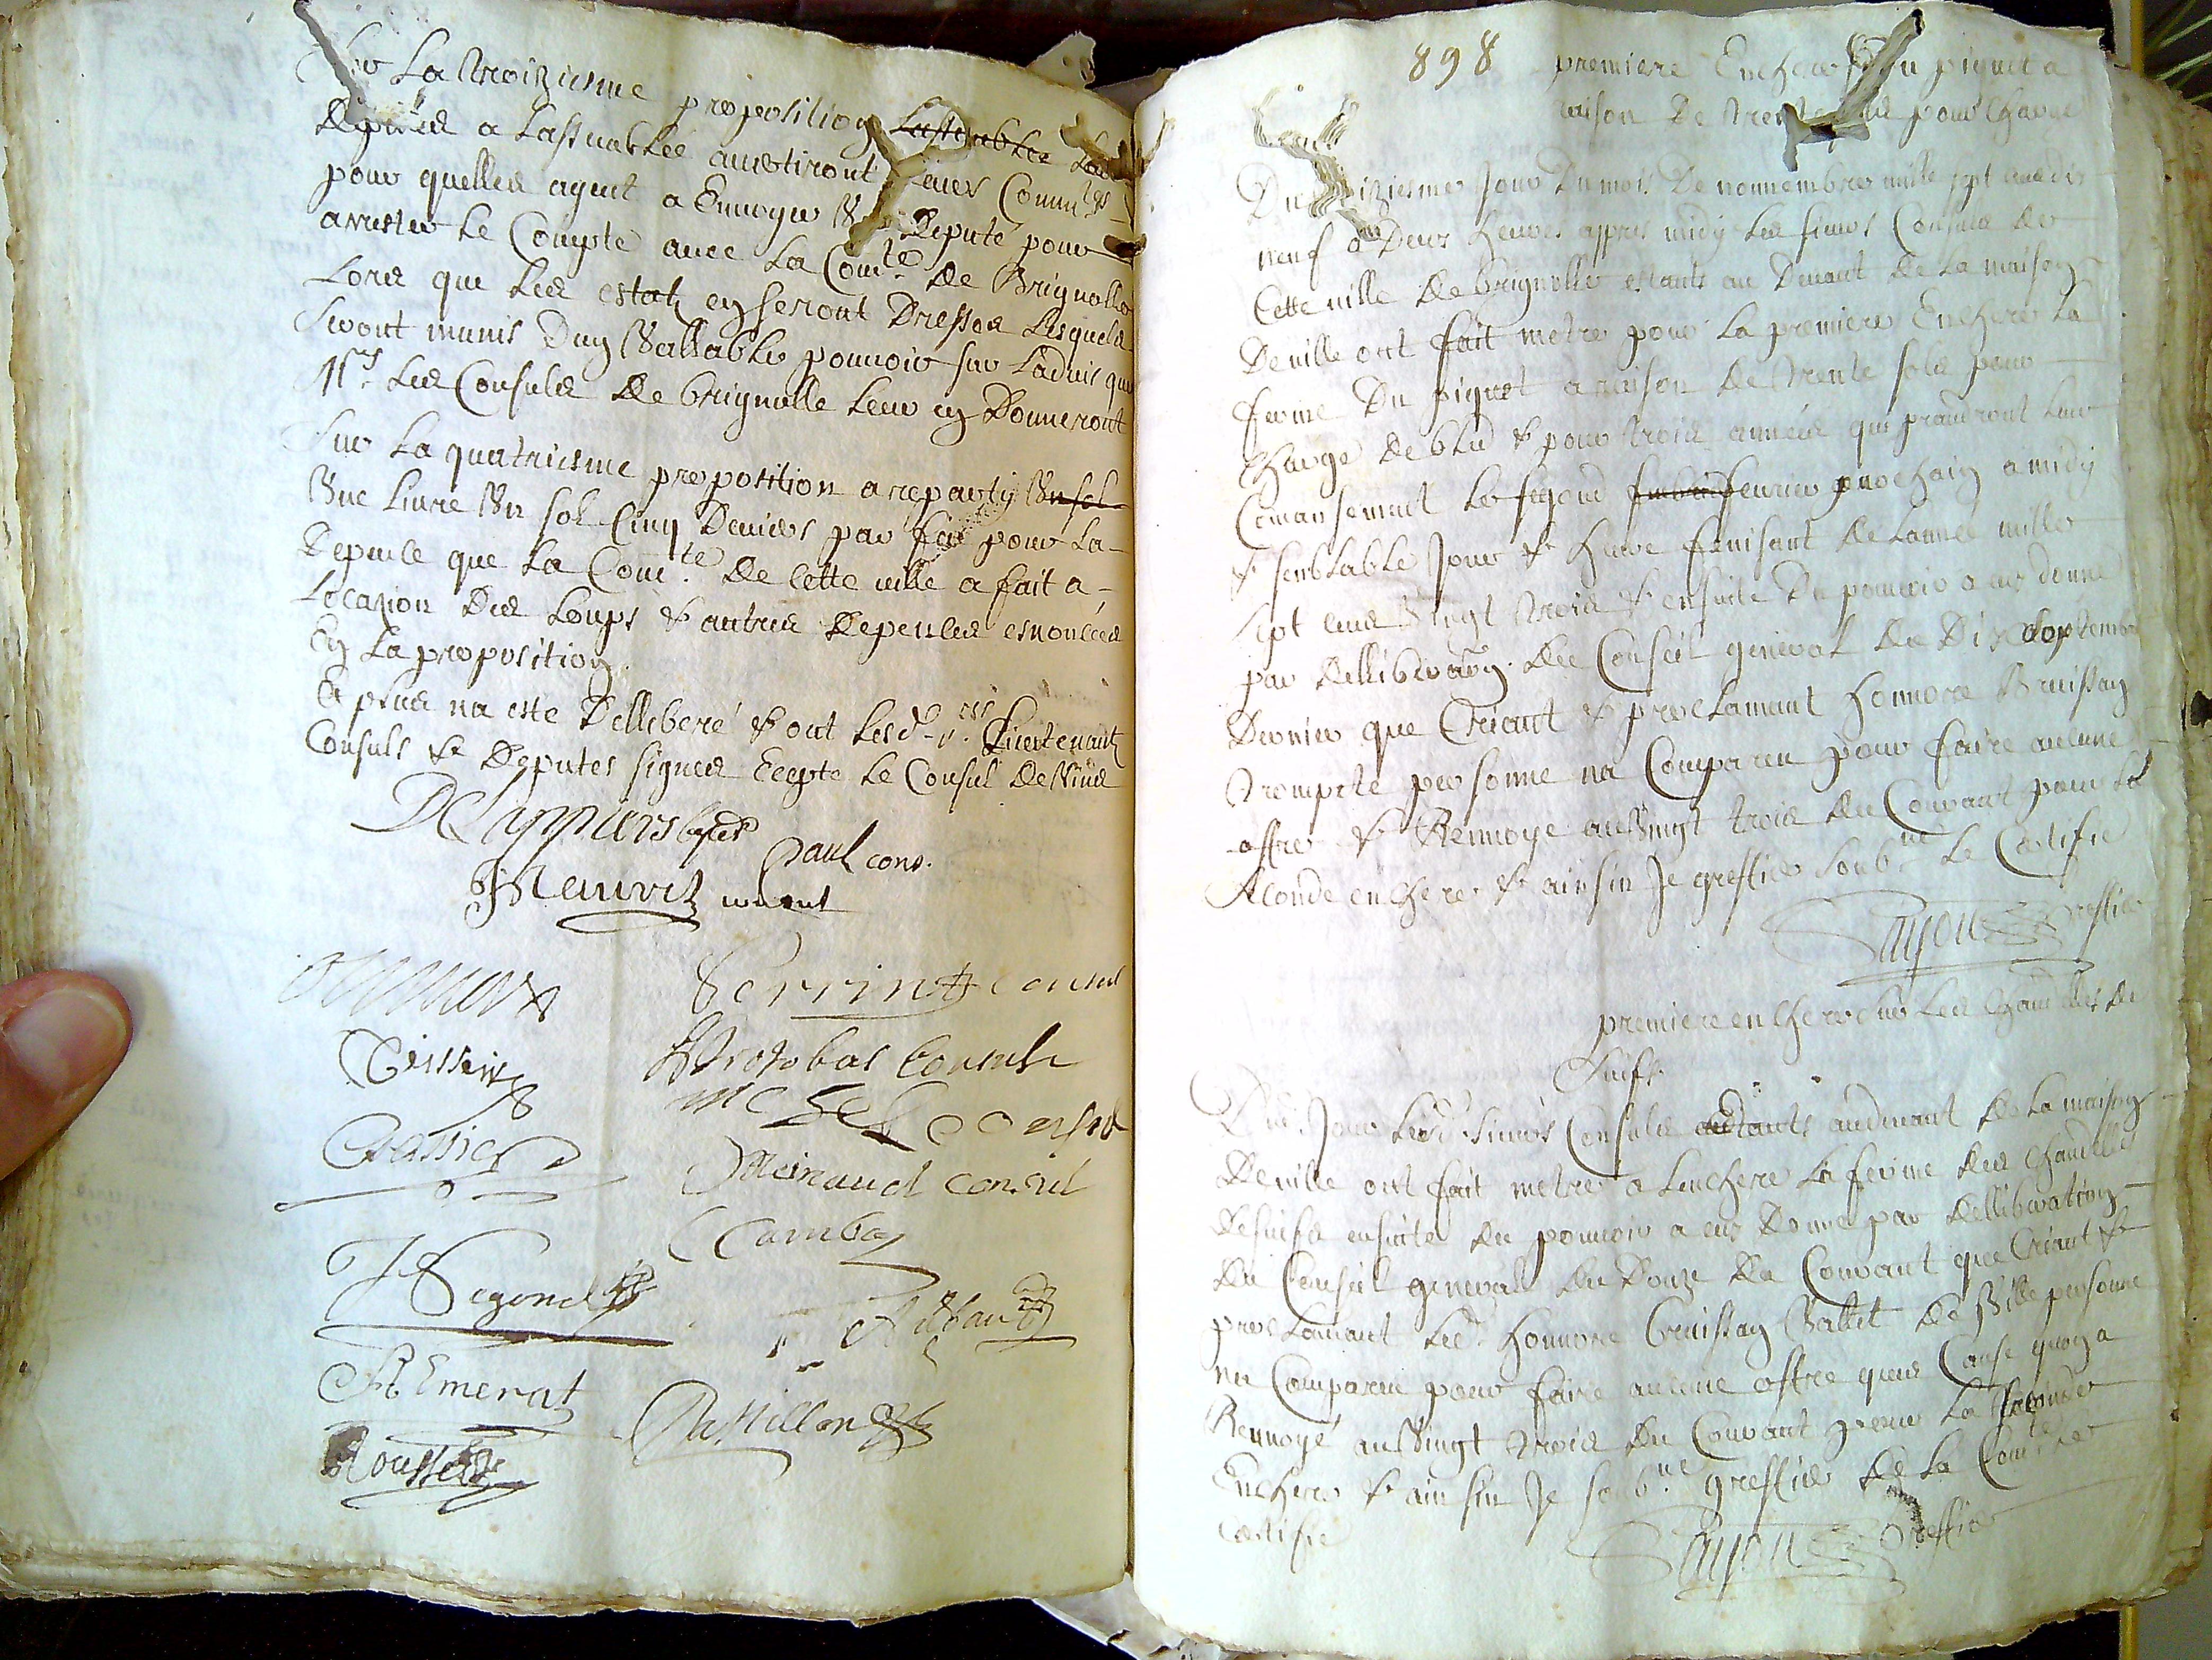 Sur La troiziesme proposition Lassemblée Les
Deputés a Lassemblée avertiront leurs Comm.tés
pour quelles ayent a Envoyer Un Deputé pour
arrester Le Compte avec La Com.te De Brignolle
Lors que Les estatz en seront Dresses Lesquels
Seront munis Dun Vallable pouvoir sur Ladvis que
Mrs Les Consuls De brignolle Leur en Donneront
Sur La quatriesme proposition a reparty Un sol
Une Livre Un sol Cinq Deniers par feu pour La
Depance que La Com.te De Cette ville a fait a
Locazion Des Loups & autres Depences enoncées
En La proposition
Et plus na este Delliberé & ont Lesd. srs Lieutenant
Consuls & Deputes signes Ecepte Le Consul De Vins
Paul cons.
Perrin consul
Brozobas Consul
Consul
Tissein
Crassier
Meinaud consul
Camba
J Segond
Rebaud
Emerat
Castillon
Rousset
898 premiere Enchere Du piquet a
raison De trente sols pour charge
Du troiziesme Jour Du mois De novembre mille sept cens dix
neuf a Deux heures appres midy Les sieurs Consuls De
Cette ville De brignolle estants au Devant De La maison
De ville ont fait metre pour La premiere Enchere La
ferme Du piquet a raison De trente sols pour
Charge De bled & pour trois années qui prandront Leur
Comansement Le segond fevrier prochain a midy
& semblable Jour & heure finisant De Lannée mille
sept cens Vingt trois & ensuite Du pouvoir a eux donne
par Delliberaôn Du Conseil general Du Dix septembre
Dernier que Criant & proclamant honnore Bruissan
trompete personne na Comparu pour faire aucune
offre & Renvoye au Vingt trois Du Courant pour La
seconde enchere & ainsin Je greffier soub.né Le Certifie
Sayou Greffier
premiere enchere sur Les Chandelles De
Suifs
Dud. Jour Lesd. sieurs Consuls estants audevant De La maison
De ville ont fait metre a Lenchere La ferme Des Chandelles
De suifs ensuite Du pouvoir a eux Donné par Delliberation
Du Conseil general Du Douze Du Courant que Criant &
proclamant Led. honnore Bruissan Vallet De Ville personne
na Comparu pour faire aucune offre quoy a
Renvoyé au Vingt trois Du Courant pour La seconde
Enchere & ainsin Je soub.né greffier De La Com.te
Certifie
Sayou Greffier